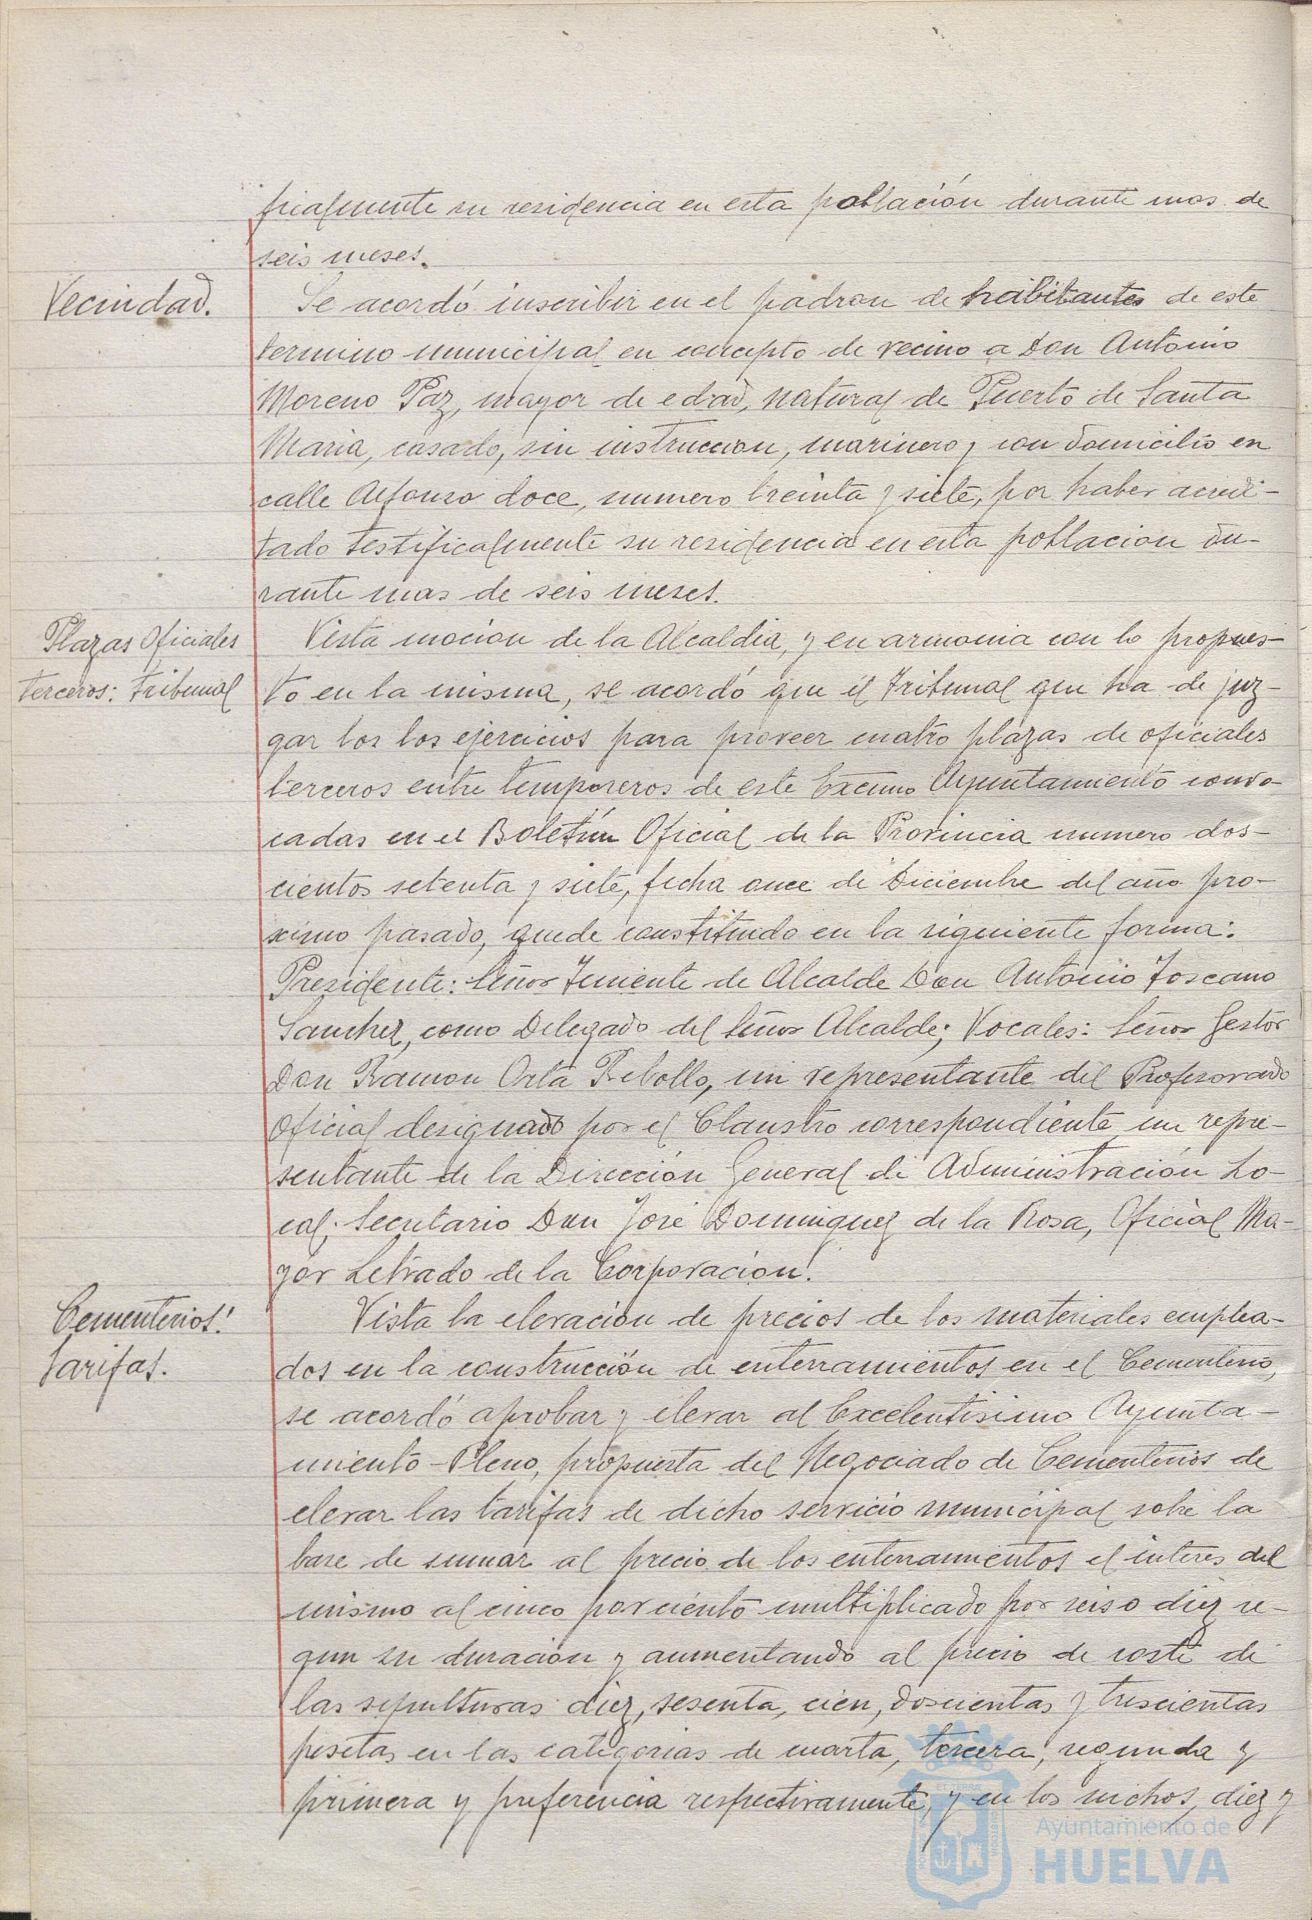 ficalmente su residencia en esta población durante mas de
seis meses.
Vecindad.
Se acordó inscribir en el padron de habitantes de este
termino municipal en concepto de vecino a Don Antonio
Moreno Paz, mayor de edad, natural de Puerto de Santa
Maria, casado, sin instruccion, marinero y con domicilio en
calle Alfonso doce, numero treinta y siete, por haber acredi-
tado testificalmente su residencia en esta poblacion du-
rante mas de seis meses.
Plazas Oficiales
terceros: Tribunal
Vista mocion de la Alcaldia, y en armonia con lo propues-
to en la misma, se acordó que el tribunal que ha de juz-
gar los los ejercicios para proveer cuatro plazas de oficiales
terceros entre temporeros de este Excmo Ayuntamiento convo-
cadas en el Boletín Oficial de la Provincia numero dos-
cientos setenta y siete, fecha once de Diciembre del año pro-
ximo pasado, quede constituido en la siguiente forma:
Presidente: Señor Teniente de Alcalde Don Antonio Toscano
Sanchez, como Delegado del Señor Alcalde; Vocales: Señor Gestor
Don Ramon Orta Rebollo, un representante del Profesorado
Oficial designado por el Claustro correspondiente un repre-
sentante de la Dirección General de Administración Lo-
cal; Secretario Don José Dominguez de la Rosa, Oficial Ma-
yor Letrado de la Corporacion.
Cementerios:
tarifas.
Vista la elevación de precios de los materiales emplea-
dos en la construcción de enterramientos en el Cementerio,
se acordó aprobar y elevar al Excelentisimo Ayunta-
miento-Pleno, propuesta del Negociado de Cementerios de
elevar las tarifas de dicho servicio municipal sobre la
base de sumar al precio de los enterramientos el interes del
mismo al cinco por ciento multiplicado por seis o diez se-
gun su duración y aumentando al precio de coste de
las sepulturas diez, sesenta, cien, doscientas y trescientas
pesetas en las categorias de cuarta, tercera, segunda y
primera y preferencia respectivamente, y en los nichos, diez y
Ayuntamiento de
HUELVA